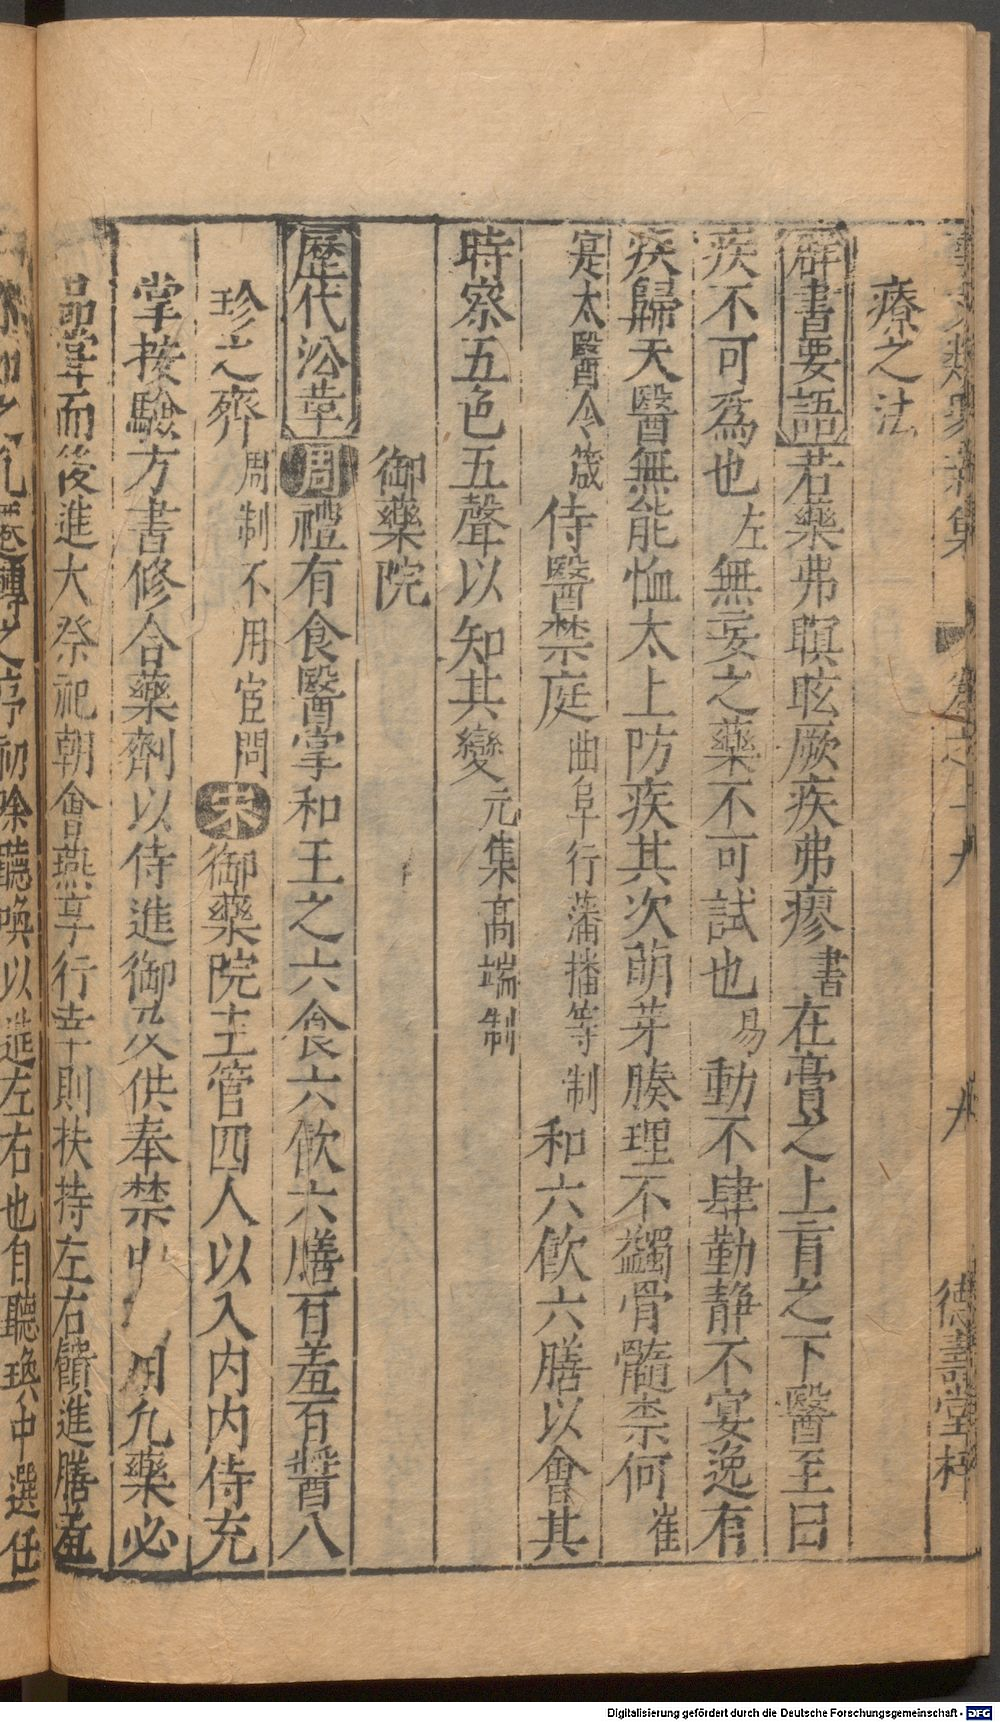 療之法
群書要語若藥弗瞑眩厥疾弗瘳書在膏之上肓之下醫至曰
疾不可爲也左無妄之藥不可試也易動不肆勤静不宴逸有
疾歸天醫無能恤太上防疾其次萌芽腠理不蠲骨髓柰何崔
寔太醫令箴侍醫禁庭曲阜行藩播等制和六飲六膳以會其
時察五色五聲以知其變元集高端制
御藥院
歷代沿革周禮有食醫掌和王之六食六飲六膳百羞百醬八
珍之齊周制不用宦問宋御藥院主管四人以入内内侍充
掌按驗方書修合藥劑以侍進御及供奉禁中用凡藥必
品嘗而後進大祭祀朝會燕享行幸則扶持左右饋進膳羞
之序初除聽喚以進左右也自聽喚中選任
德壽堂梓
Digitalisierung gefördert durch die Deutsche Forschungsgemeinschaft - DFG